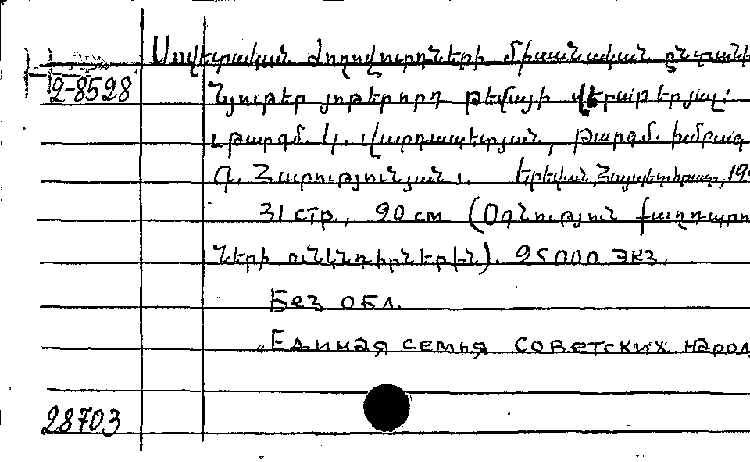 Սովետական ժողովուրդների միասնական ընտանի
2-8528
Նյութեր յոթերորդ թեմայի վերաբերյալ:
թարգմ. Կ. Վարդապետյան, թարգմ. խմբագ
Գ. Հարությունյան. Երևան, Հայպետհրատ, 19
31 стр., 20 см (Օգնություն քաղդպրո
ների ունկնդիրներին). 25000 экз.
Без обл.
„Единая семья советских народ
28703